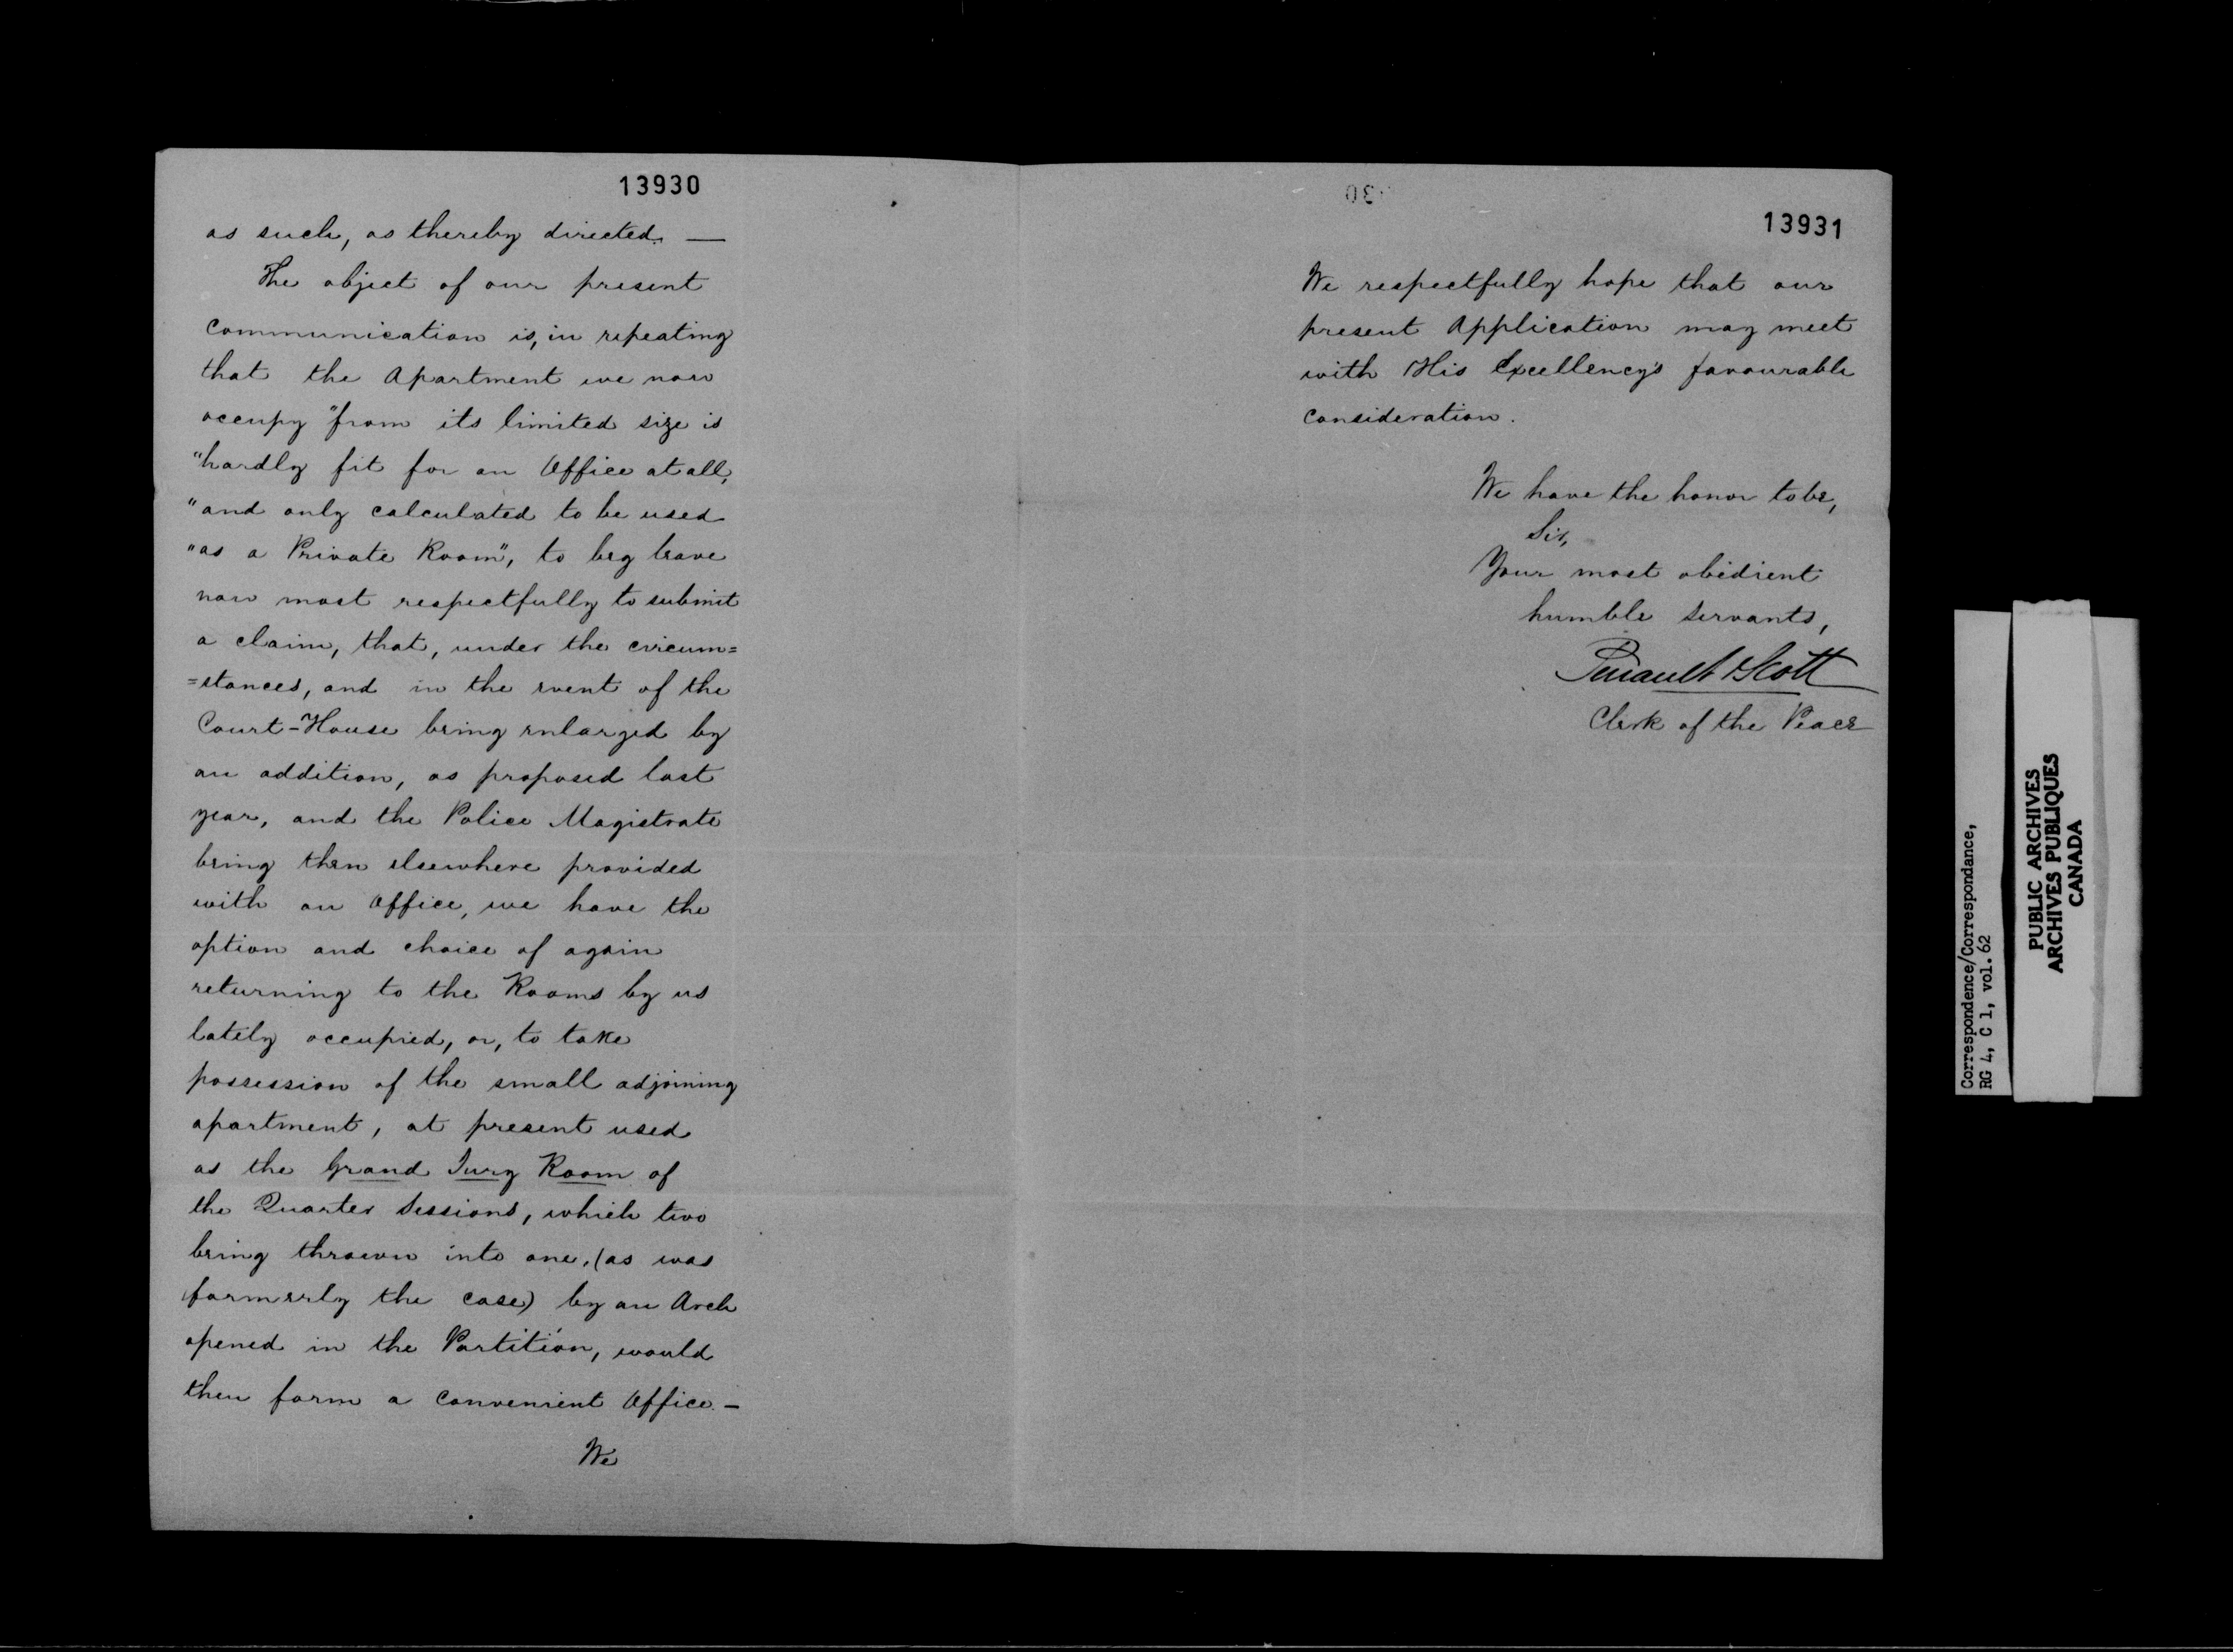 13930
as such, as thereby directed. —
The object of our present
Communication is, in repeating
that the Apartment we now
occupy "from its limited size is
"hardly fit for an Office at all,
"and only calculated to be used
"as a Private Room", to beg leave
now most respectfully to submit
a claim, that, under the circum=
=stances, and in the event of the
Court-House being enlarged by
an addition, as proposed last
year, and the Police Magistrate
being then elsewhere provided
with an Office, we have the
option and choice of again
returning to the Rooms by us
lately occupied, or, to take
possession of the small adjoining
apartment, at present used
as the Grand Jury Room of
the Quarter Sessions, which two
being thrown into one, (as was
formerly the case) by an Arch
opened in the Partition, would
then form a convenient Office. —
We
13931
We respectfully hope that our
present Application may meet
with His Excellency's favourable
consideration.
We have the honor to be,
Sir,
Your most obedient
humble servants,
Perrault & Scott
Clerk of the Peace
Correspondence/Correspondance,
RG 4, C 1, vol. 62
PUBLIC ARCHIVES
ARCHIVES PUBLIQUES
CANADA